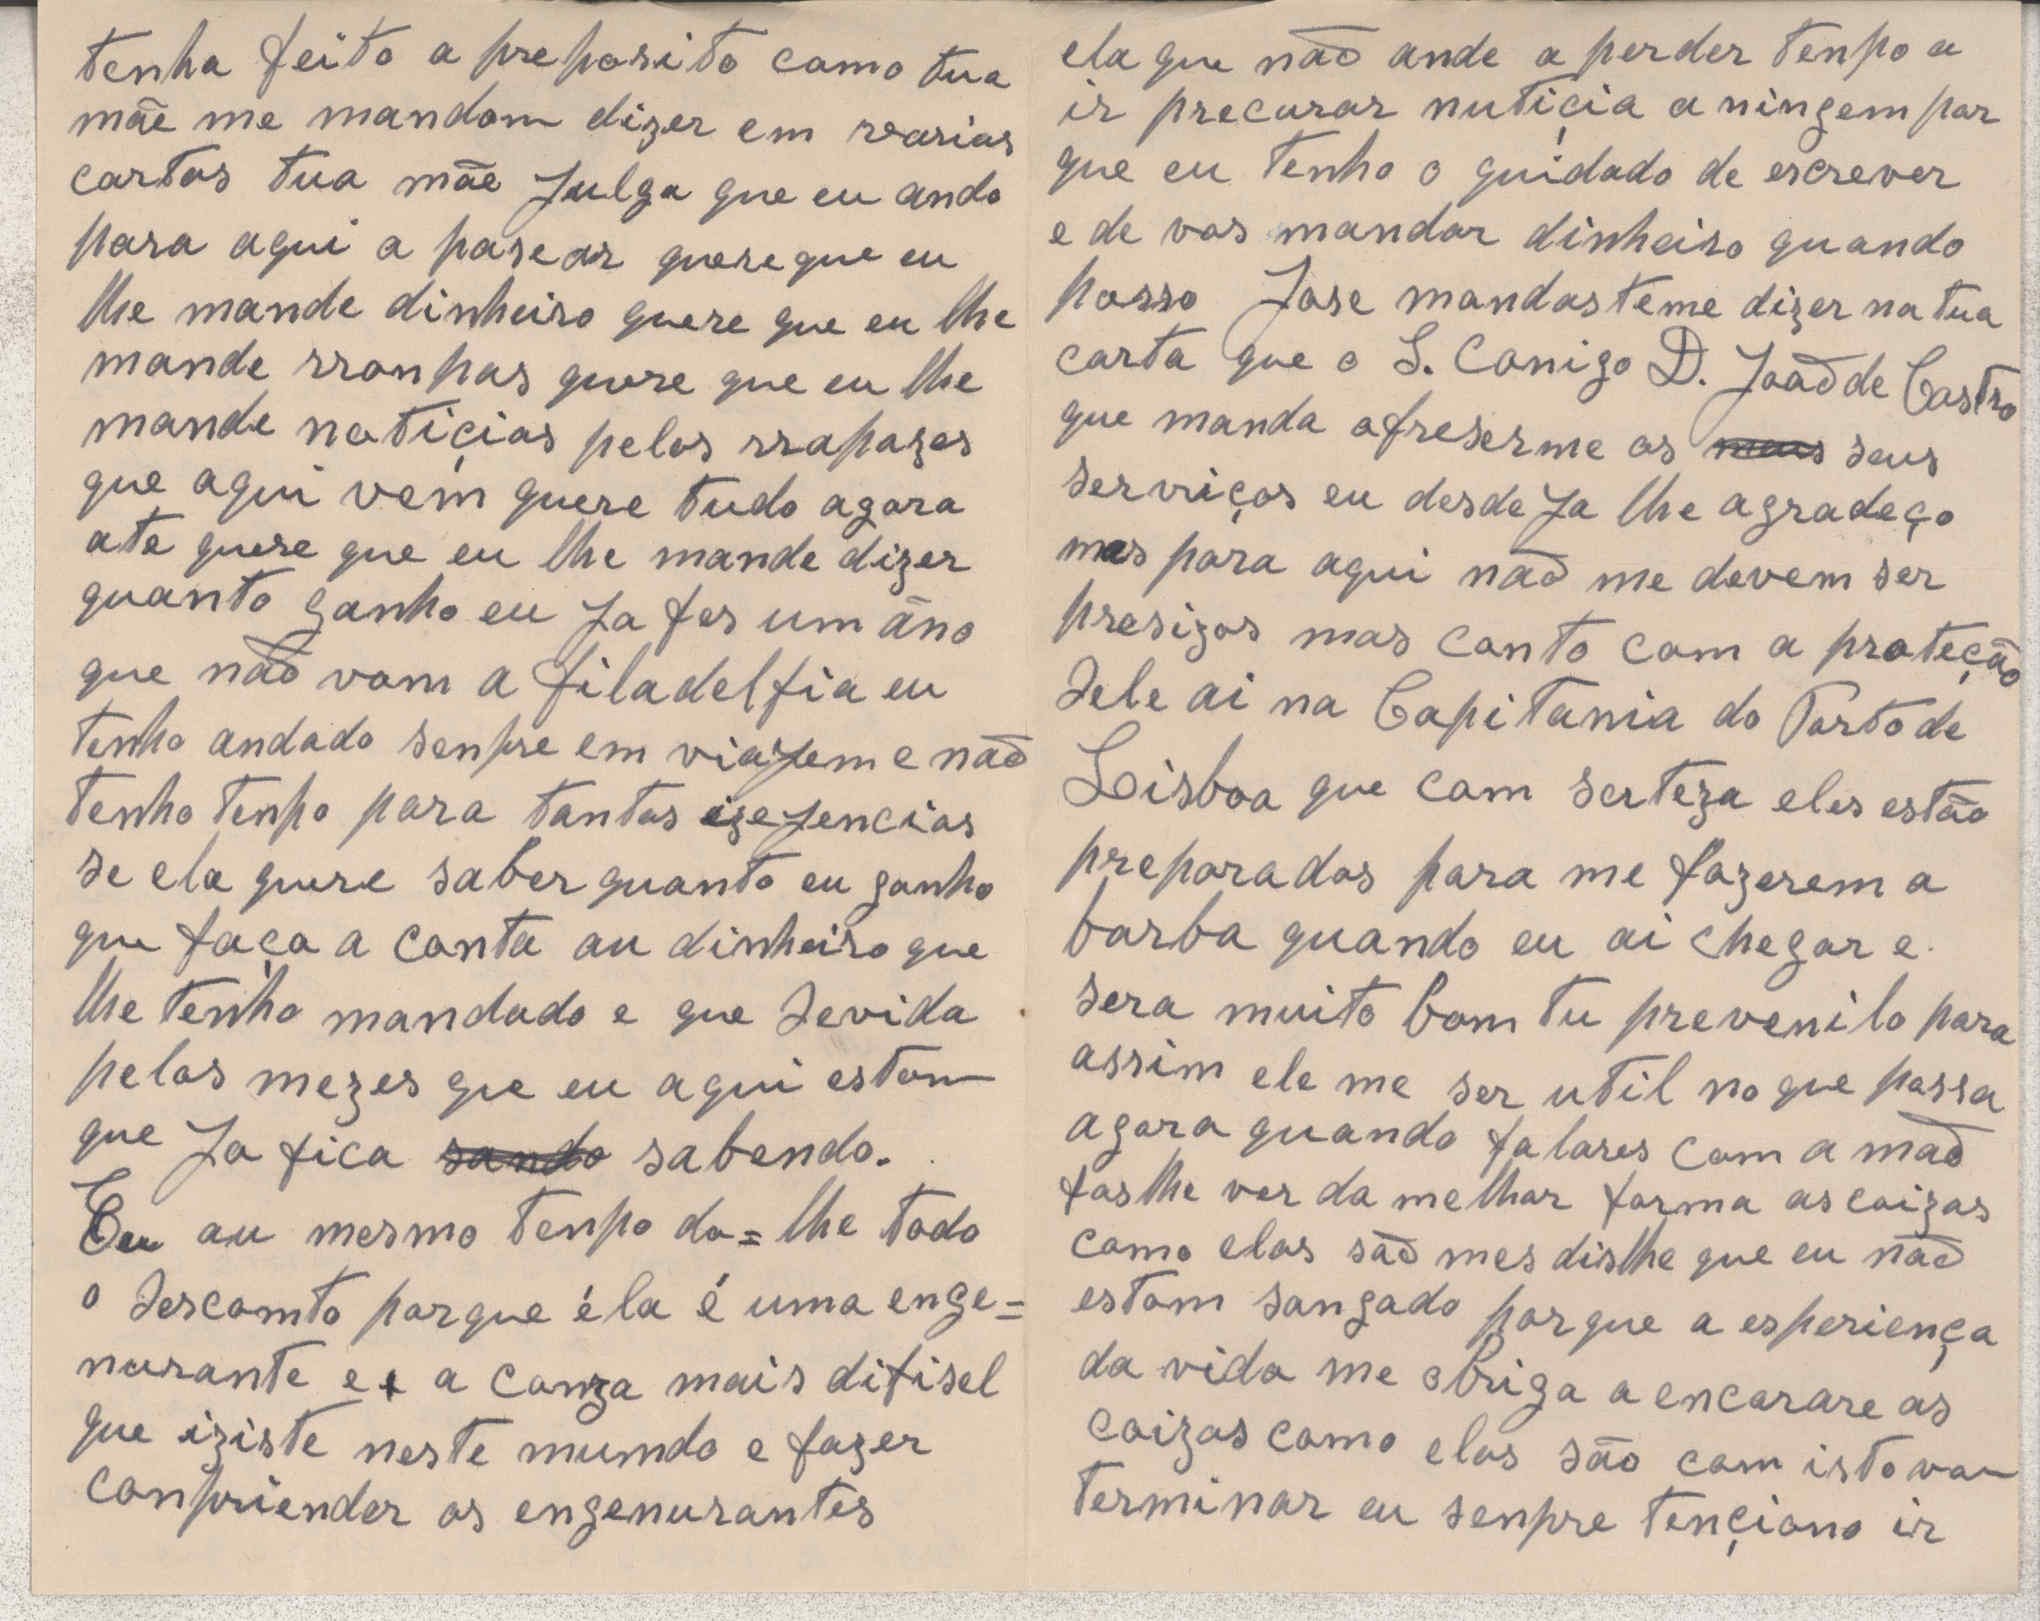 tenha feito a preposito como tua
mãe me mandou dizer em varias
cartas tua mãe Julga que eu ando
para aqui a pasear quere que eu
lhe mande dinheiro quere que eu lhe
mande rroupas quere que eu lhe
mande natiçias pelos rrapazes
que aqui vem quere tudo agora
ate quere que eu lhe mande dizer
quanto ganho eu Ja fes um áno
que não vom a filadelfia eu
tenho andado senpre em viaJem e não
tenho tenpo para tantas izeJencias
se ela quere saber quanto eu ganho
que faça a conta au dinheiro que
lhe tenho mandado e que devida
pelos mezes que eu aqui estou
que Ja fica sando sabendo.
Eu au mesmo tenpo do=lhe todo
o descomto porque éla é uma enge=
nurante e a couza mais difisel
que iziste neste mumdo e fazer
conpriender os engenurantes
ela que não ande a perder tenpo a
ir precurar nutiçia a ningem por
que eu tenho o guidado de escrever
e de vos mandar dinheiro quando
posso Jose mandasteme dizer na tua
carta que o S. Conigo D. João de Castro
que manda afreserme os meus seus
serviços eu desde Ja lhe agradeço
mas para aqui não me devem ser
presizos mas canto com a proteção
dele ai na Capitania do Porto de
Lisboa que com serteza eles estão
preparados para me fazerem a
barba quando eu ai chegar e
sera muito bom tu prevenilo para
assim ele me ser util no que possa
agora quando falares com a mão
faslhe ver da melhor forma as coizas
como elas são mes dislhe que eu não
estom sangado porque a esperiença
da vida me obriga a encarare as
coizas como elas são com isto vou
terminar eu senpre tençiono ir